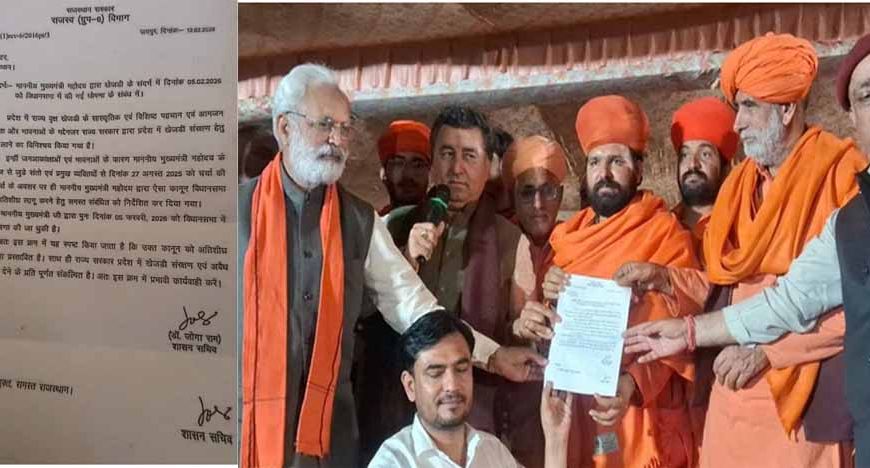 राजस्थान सरकार
राजस्व (ग्रुप-6) विभाग
(1)rev-6/2016pt/1
जयपुर, दिनांकः- 12.02.2026
माननीय मुख्यमंत्री महोदय द्वारा खेजड़ी के संदर्भ में दिनांक 05.02.2026
को विधानसभा में की गई घोषणा के संबंध में।
प्रदेश में राज्य वृक्ष खेजड़ी के सांस्कृतिक एवं विशिष्ट पहचान एवं आमजन
और भावनाओं के मद्देनजर राज्य सरकार द्वारा प्रदेश में खेजड़ी संरक्षण हेतु
लाने का विनिश्चय किया गया है।
इन्हीं जनआकांक्षाओं एवं भावनाओं के कारण माननीय मुख्यमंत्री महोदय के
से जुड़े संतों एवं प्रमुख व्यक्तियों से दिनांक 27 अगस्त 2025 को चर्चा की
के अवसर पर ही माननीय मुख्यमंत्री महोदय द्वारा ऐसा कानून विधानसभा
लागू करने हेतु समस्त संबंधित को निर्देशित कर दिया गया।
माननीय मुख्यमंत्री जी द्वारा पुनः दिनांक 05 फरवरी, 2026 को विधानसभा में
की जा चुकी है।
अतः इस क्रम में यह स्पष्ट किया जाता है कि उक्त कानून को अतिशीघ्र
प्रस्तावित है। साथ ही राज्य सरकार प्रदेश में खेजड़ी संरक्षण एवं अवैध
देने के प्रति पूर्णत संकल्पित है। अतः इस क्रम में प्रभावी कार्यवाही करें।
(डॉ. जोगा राम)
शासन सचिव
समस्त राजस्थान।
शासन सचिव